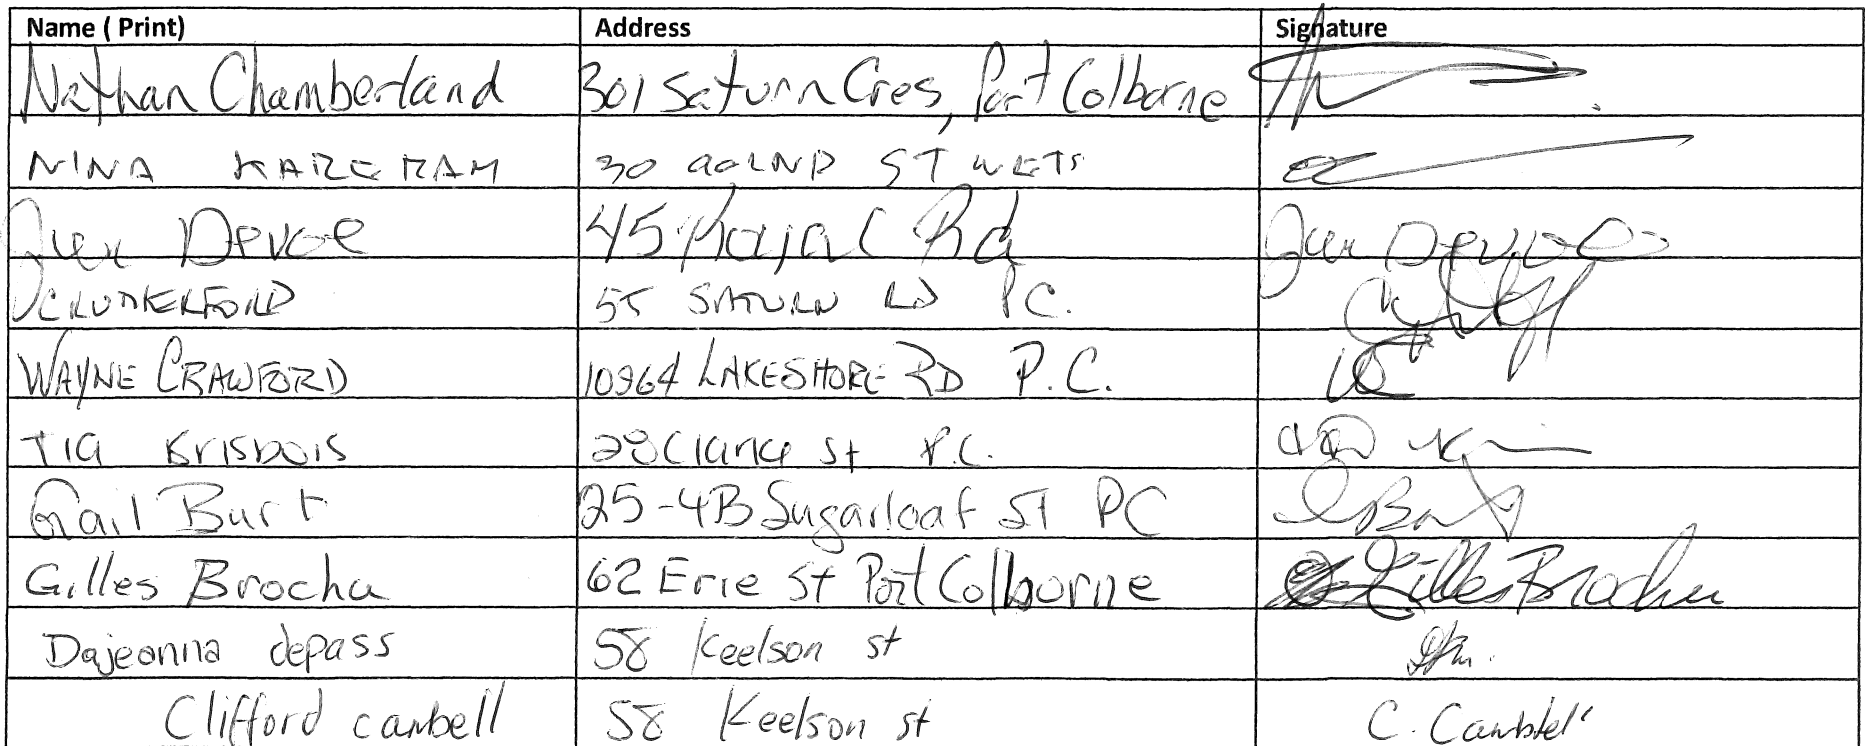 Name ( Print) Address Signature
Nathan Chamberland 301 Saturn Cres, Port Colborne
NINA 30 ST WETS
Jen Devoe 45 Royal Rd Jen Devoe
CRUTHERFORD 55 SATURN RD P.C.
WAYNE CRAWFORD 10964 LAKESHORE RD P.C.
TIA Brisbois 28 Clarke st P.C.
Gail Burt 25-4B Sugarloaf ST PC G Burt
Gilles Brochu 62 Erie St Port Colborne Gilles Brochu
Dajeonna depass 58 Keelson st
Clifford cambell 58 Keelson st C. Cambell